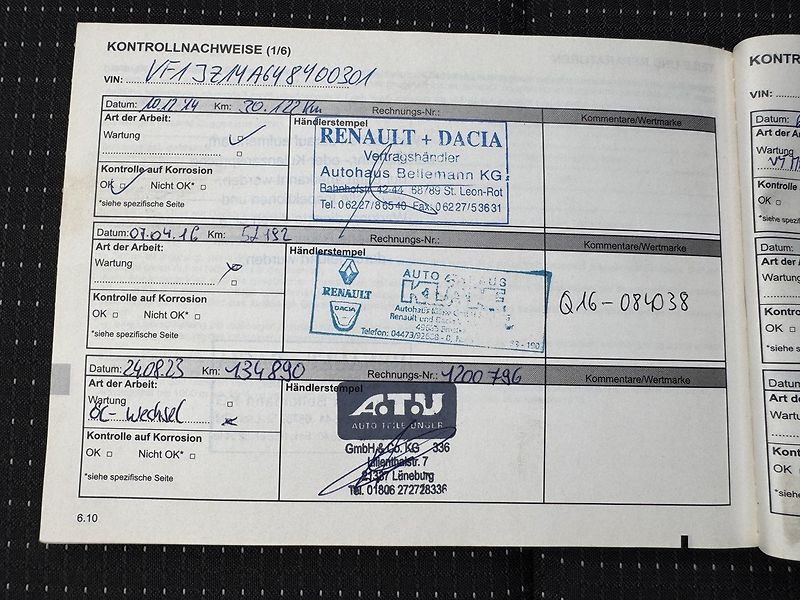 KONTROLLNACHWEISE (1/6)
VIN: VF1JZ14A648400301
Datum: 10.12.14 Km: 30.122 km Rechnungs-Nr.:
Art der Arbeit:
Wartung
Kontrolle auf Korrosion
OK Nicht OK*
*siehe spezifische Seite
Händlerstempel
RENAULT + DACIA
Vertragshändler
Autohaus Bellemann KG
Bahnhofstr. 42-44 68789 St. Leon-Rot
Tel. 06227/86540 Fax: 06227/53631
Kommentare/Wertmarke
Datum: 07.04.16 Km: 52192 Rechnungs-Nr.:
Art der Arbeit:
Wartung
Kontrolle auf Korrosion
OK Nicht OK*
*siehe spezifische Seite
Händlerstempel
RENAULT
DACIA
Autohaus
Renault und
Telefon: 04473/92688 - 0,
Kommentare/Wertmarke
Q16-084038
Datum: 24.08.23 Km: 134890 Rechnungs-Nr.: 1200796
Art der Arbeit:
Wartung
Öl-Wechsel
Kontrolle auf Korrosion
OK Nicht OK*
*siehe spezifische Seite
Händlerstempel
A.T.U
AUTO TEILE UNGER
GmbH & Co. KG 336
Lilienthalstr. 7
21337 Lüneburg
Tel. 01806 272728336
Kommentare/Wertmarke
6.10
KONTR
VIN:
Datum:
Art der
Wartung
Kontroll
OK
*siehe spe
Datum:
Art der
Wartung
Kontroll
OK
*siehe spe
Datum:
Art der
Wartung
Kontrol
OK
*siehe